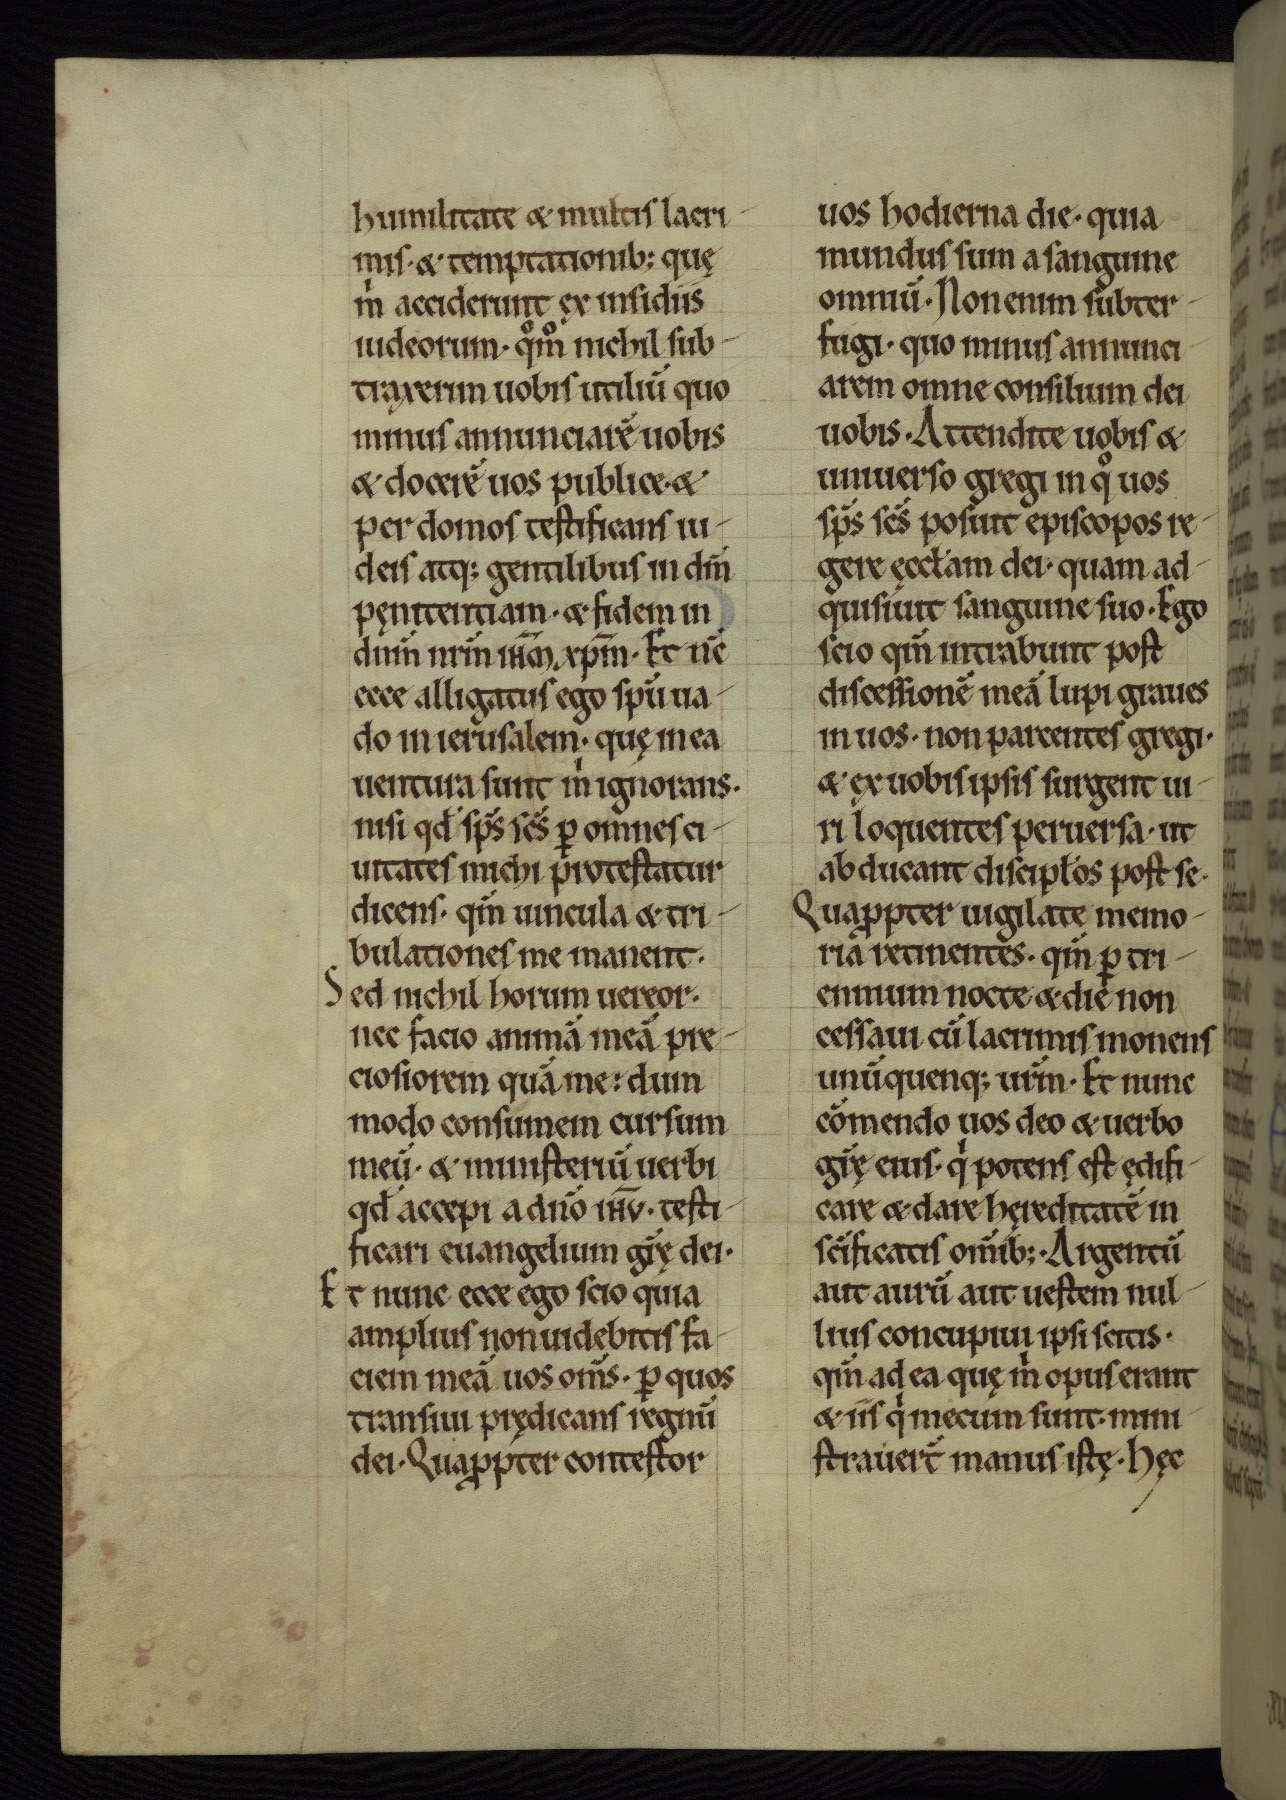 humilitate & multis lacri-
mis· & temptationib; quę
m̍ acciderunt ex insidiis
iudeorum· qͦmͦ nichil sub-
traxerim uobis utiliū quo
minus annunciarē uobis
& docerē uos publice· &
per domos testificans iu-
deis atq; gentilibus in dm̄
pęnitentiam· & fidem in
dnm̄ nrm̄ ihm̄ xpm̄· Et nc̄
ecce alligatus ego spū ua-
do in ierusalem· quę in ea
uentura sunt m̍ ignorans·
nisi qd̄ sps̄ scs̄ ꝑ omnes ci-
uitates michi protestatur
dicens· qm̄ uincula & tri-
bulationes me manent·
Sed nichil horum uereor·
nec facio animā meā pre-
ciosiorem quā me: dum
modo consumem cursum
meū· & ministeriū uerbi
qd̄ accepi a dnō ihū· testi-
ficari euangelium grę̄ dei·
Et nunc ecce ego scio quia
amplius non uidebitis fa-
ciem meā uos oms̄· ꝑ quos
transiui prędicans regnū
dei· Quaꝓpter contestor
uos hodierna die· quia
mundus sum a sanguine
omniū· Non enim subter-
fugi· quo minus annunci
arem omne consilium dei
uobis· Attendite uobis &
uniuerso gregi in qͦ uos
sps̄ scs̄ posuit episcopos re-
gere ęccl̄am dei· quam ad-
quisiuit sanguine suo· Ego
scio qm̄ intrabunt post
discessionē meā lupi graues
in uos· non parcentes gregi·
& ex uobis ipsis surgent ui-
ri loquentes peruersa· ut
abducant discipl̄os post se·
Quaꝓpter uigilate memo-
riā retinentes· qm̄ ꝑ tri-
ennium nocte & die non
cessaui cū lacrimis monens
unūquenq; urm̄· Et nunc
cōmendo uos deo & uerbo
grę̄ eius· q̍ potens est ędifi-
care & dare hęreditatē in
scīficatis omīb;· Argentū
aut aurū aut uestem nul-
lius concupiui ipsi scitis·
qm̄ ad ea quę m̍ opus erant
& iis q̍ mecum sunt· mini
strauerт̄ manus istę· Hęc